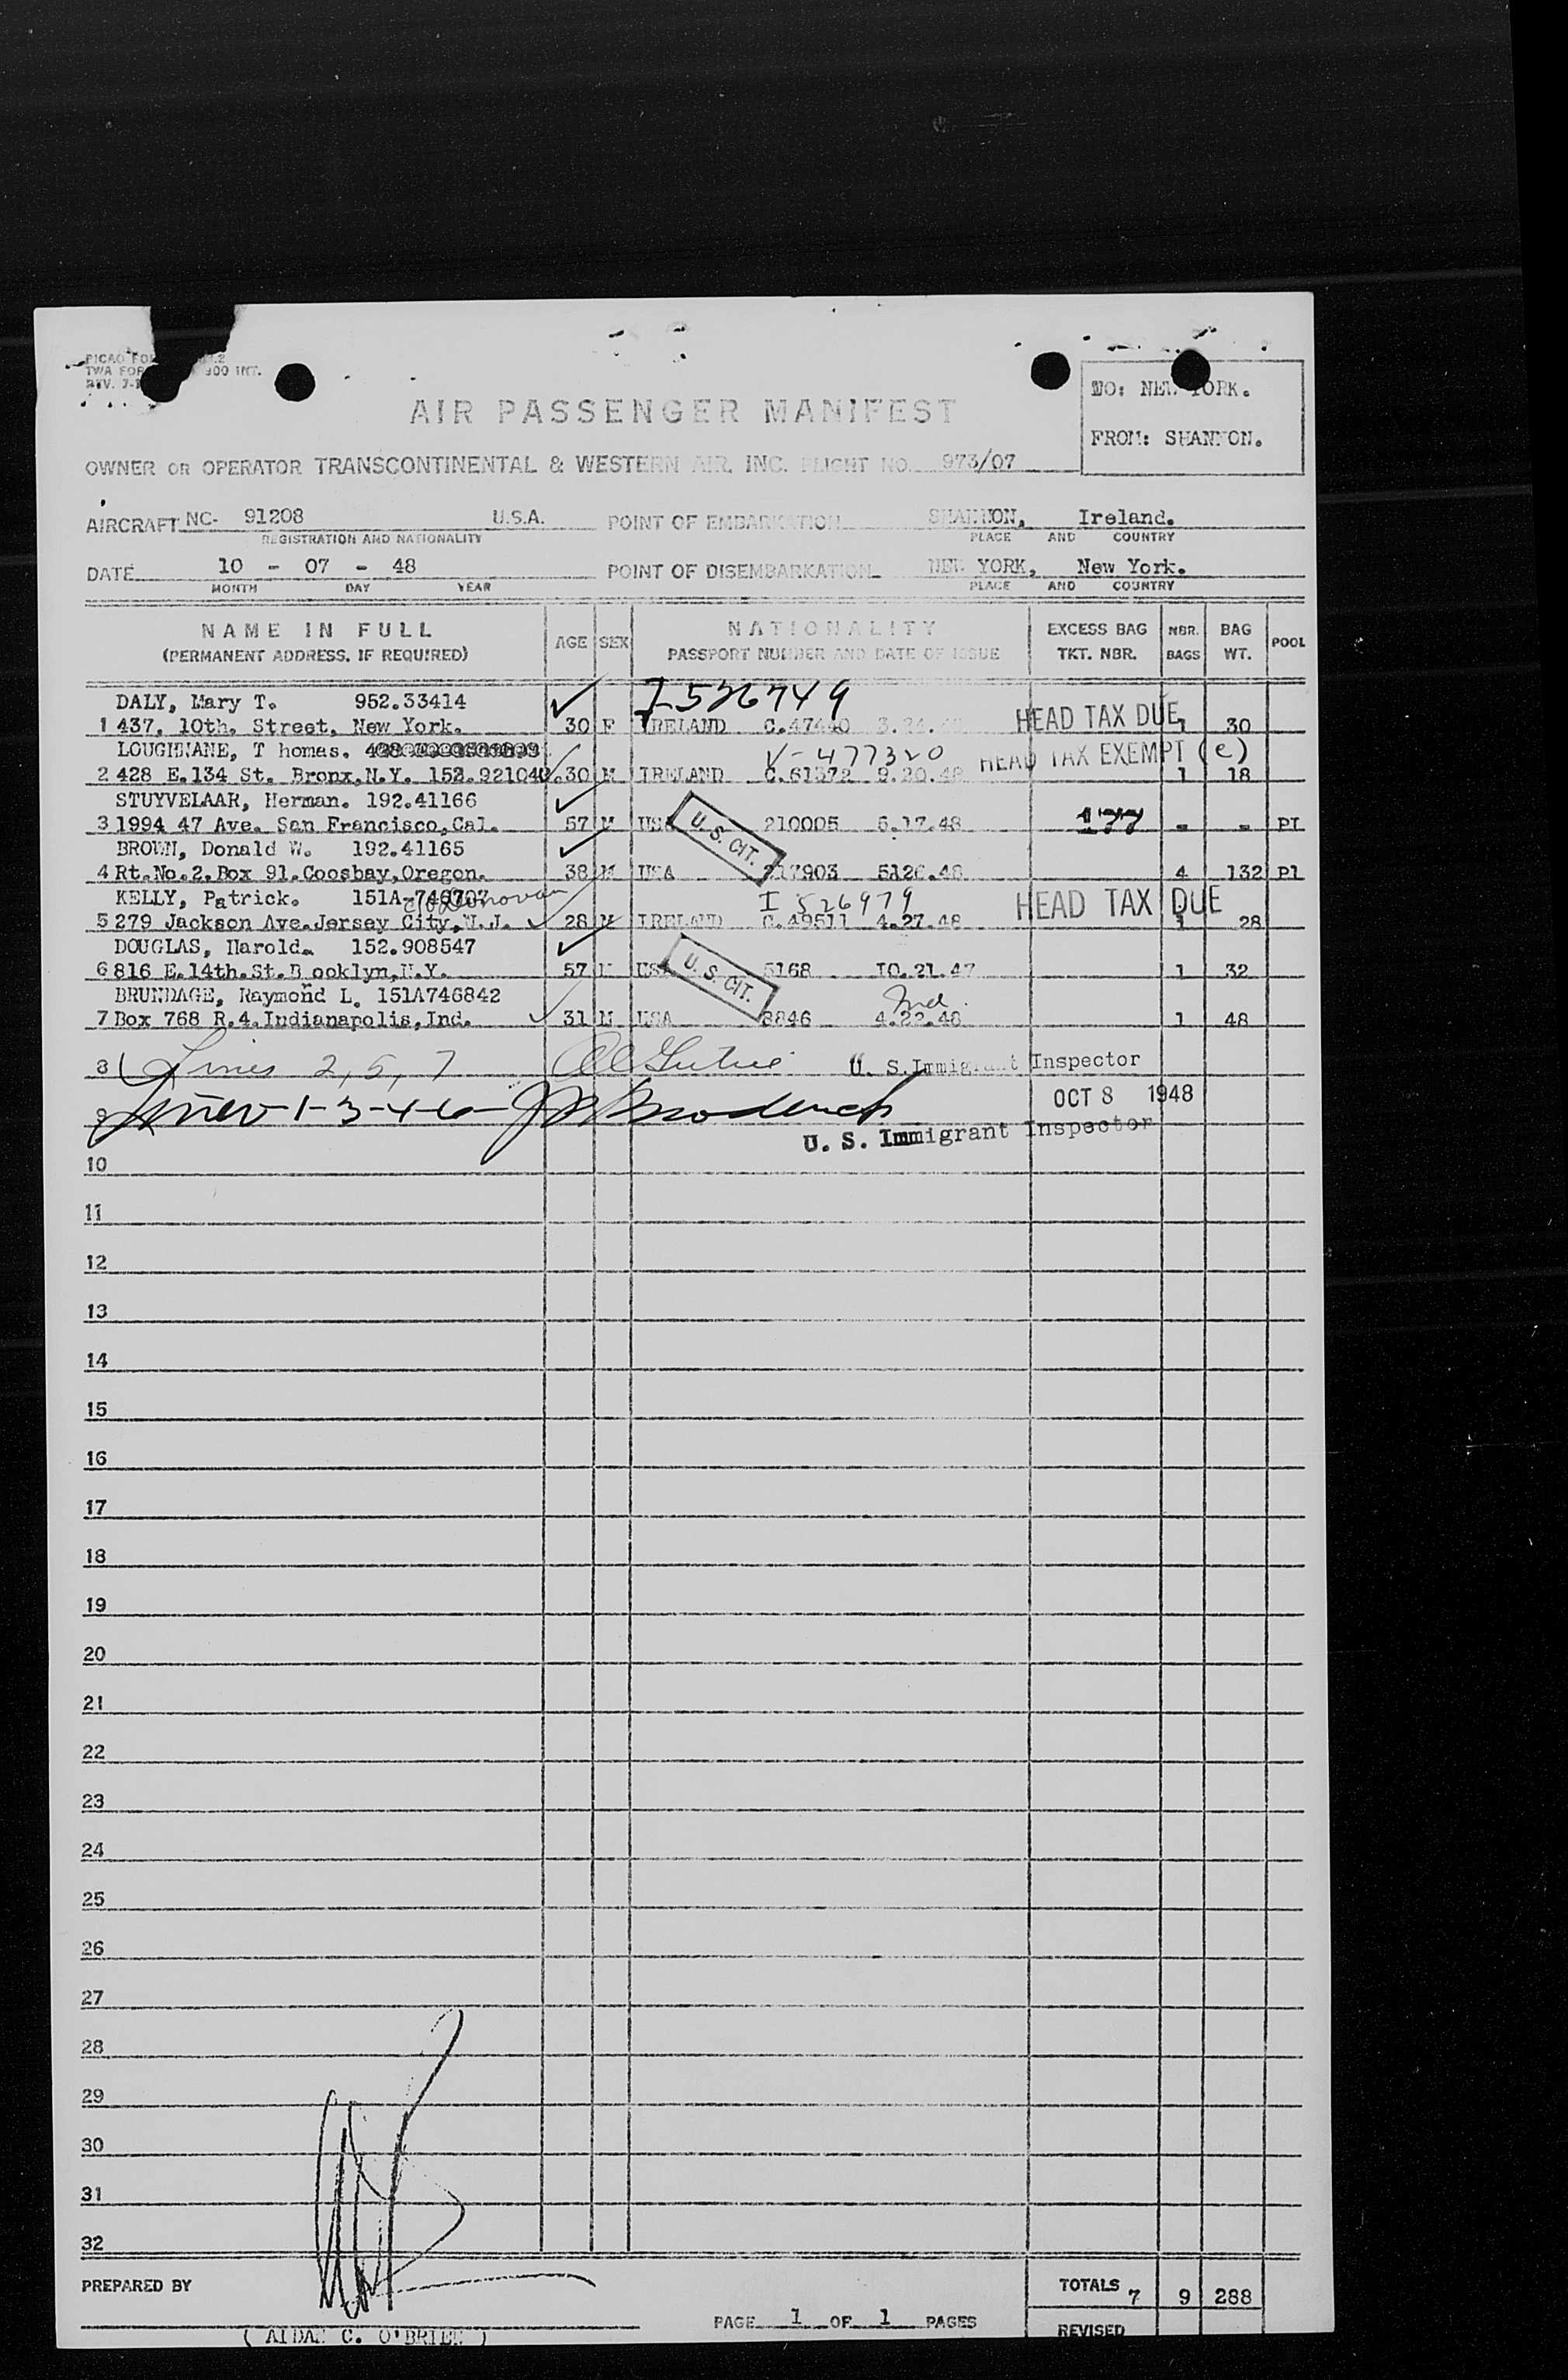 TWA FOR 900 INT.
REV. 7-1
AIR PASSENGER MANIFEST
TO: NEW YORK.
FROM: SHANNON.
OWNER OR OPERATOR TRANSCONTINENTAL & WESTERN AIR, INC. FLIGHT NO. 973/07
AIRCRAFT NC- 91208 U.S.A. POINT OF EMBARKATION SHANNON, Ireland.
REGISTRATION AND NATIONALITY PLACE AND COUNTRY
DATE 10 - 07 - 48 POINT OF DISEMBARKATION NEW YORK, New York.
MONTH DAY YEAR PLACE AND COUNTRY
NAME IN FULL AGE SEX NATIONALITY EXCESS BAG NBR. BAG POOL
(PERMANENT ADDRESS, IF REQUIRED) PASSPORT NUMBER AND DATE OF ISSUE TKT. NBR. BAGS WT.
DALY, Mary T. 952.33414 I-526749
1 437, 10th, Street, New York. 30 F IRELAND C.47440 HEAD TAX DUE 1 30
LOUGHNANE, T homas. V-477320 HEAD TAX EXEMPT (e)
2 428 E.134 St. Bronx,N.Y. 152.921040. 30 M IRELAND C.61372 9.20.48 1 18
STUYVELAAR, Herman. 192.41166
3 1994 47 Ave. San Francisco,Cal. 57 M USA U. S. CIT. 210005 5.17.48 - - PI
BROWN, Donald W. 192.41165
4 Rt.No.2.Box 91.Coosbay,Oregon. 38 M USA 217903 5126.48 4 132 Pl
KELLY, Patrick. 151A-746707 c/o Donovan I 526979 HEAD TAX DUE
5 279 Jackson Ave.Jersey City,N.J. 28 M IRELAND C.49511 4.27.48 1 28
DOUGLAS, Harold. 152.908547
6 816 E.14th.St.B ooklyn,N.Y. 57 M USA U. S. CIT. 5168 IO.21.47 1 32
r
BRUNDAGE, Raymond L. 151A746842 Ind.
7 Box 768 R.4.Indianapolis,Ind. 31 M USA 8846 4.22.48 1 48
8 Lines 2, 5, 7 U. S.Immigrant Inspector
OCT 8 1948
9 Lines 1-3-4-6- J Broderick
U. S. Immigrant Inspector
10
11
12
13
14
15
16
17
18
19
20
21
22
23
24
25
26
27
28
29
30
31
32
PREPARED BY TOTALS 7 9 288
PAGE 1 OF 1 PAGES REVISED
( AIDAN C. O'BRIEN )